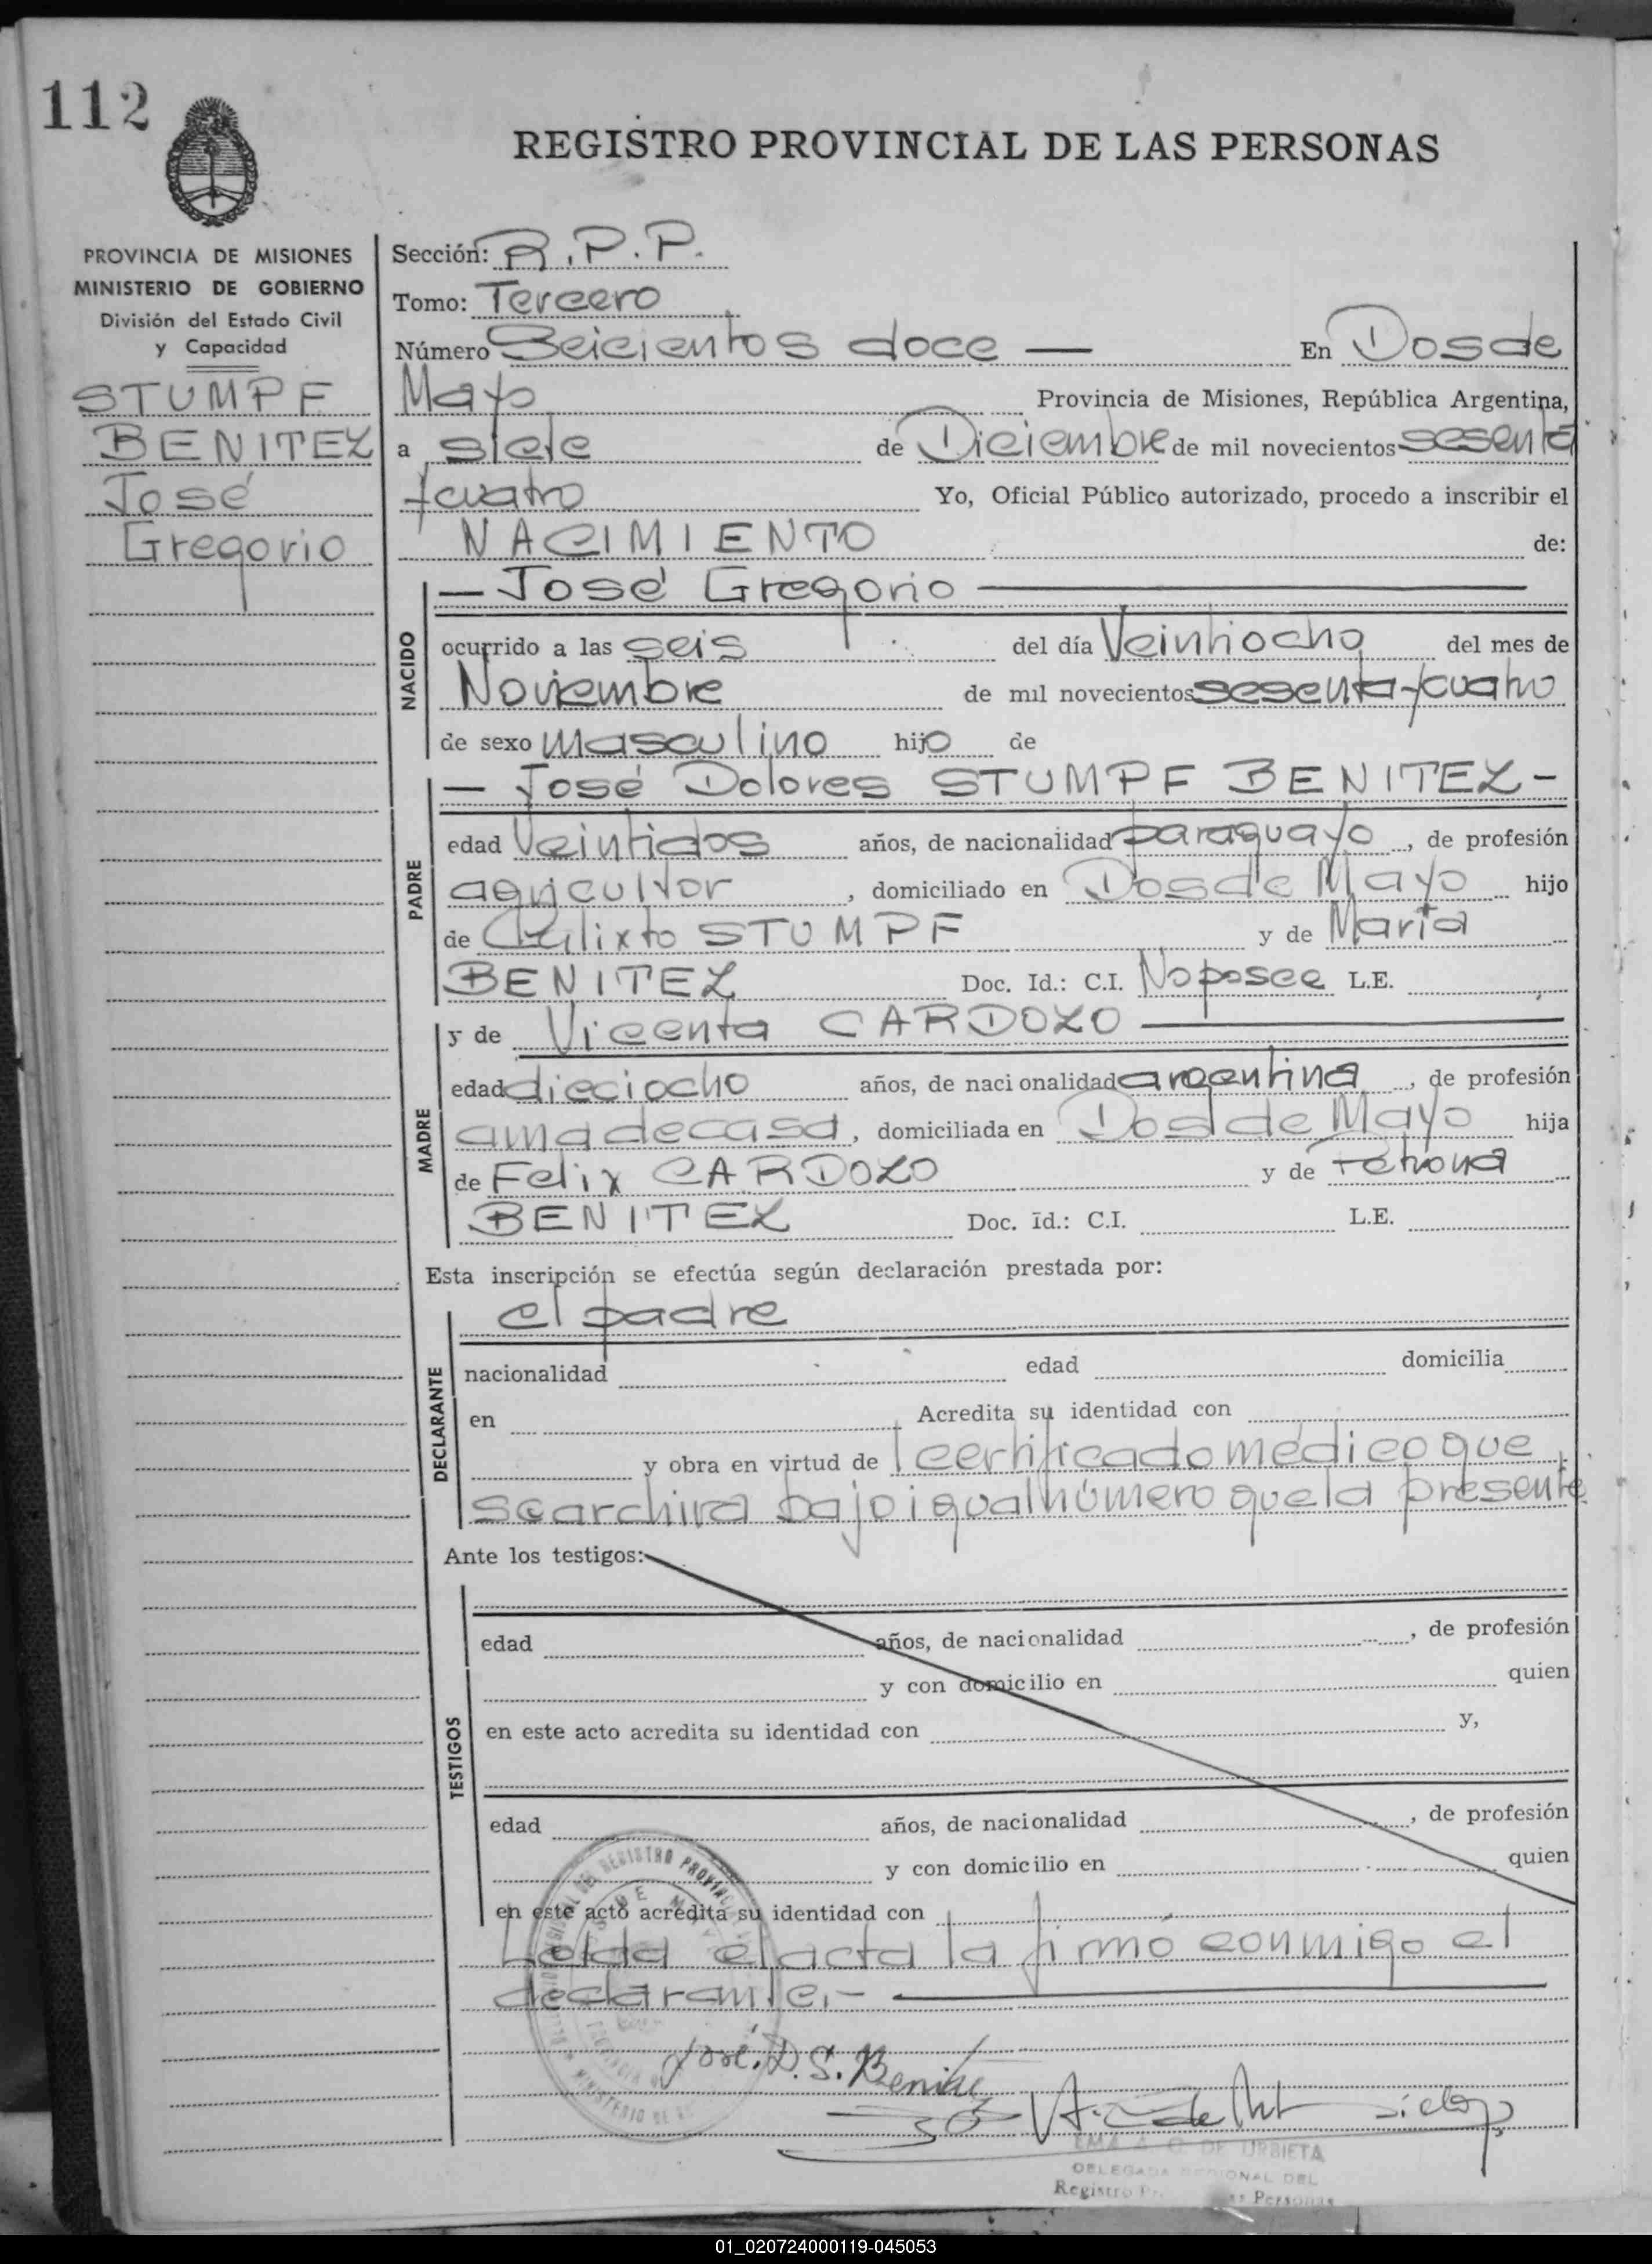 112
REGISTRO PROVINCIAL DE LAS PERSONAS
PROVINCIA DE MISIONES
MINISTERIO DE GOBIERNO
División del Estado Civil
y Capacidad
STUMPF
BENITEZ
José
Gregorio
Sección: R.P.P.
Tomo: Tercero
Número Seicientos doce — En Dos de
Mayo Provincia de Misiones, República Argentina,
a siete de Diciembre de mil novecientos sesenta
y cuatro Yo, Oficial Público autorizado, procedo a inscribir el
NACIMIENTO de:
NACIDO
— José Gregorio —
ocurrido a las seis del día Veintiocho del mes de
Noviembre de mil novecientos sesenta y cuatro
de sexo masculino hijo de
PADRE
— José Dolores STUMPF BENITEZ -
edad Veintidos años, de nacionalidad paraguayo, de profesión
agricultor, domiciliado en Dos de Mayo hijo
de STUMPF y de María
BENITEZ Doc. Id.: C.I. No posee L.E.
MADRE
y de Vicenta CARDOZO —
edad dieciocho años, de nacionalidad argentina, de profesión
ama de casa, domiciliada en Dos de Mayo hija
de Felix CARDOZO y de
BENITEZ Doc. Id.: C.I. L.E.
Esta inscripción se efectúa según declaración prestada por:
DECLARANTE
el padre
nacionalidad edad domicilia
en Acredita su identidad con
y obra en virtud de certificado médico que
se archiva bajo igual número que la presente
Ante los testigos:
TESTIGOS
edad años, de nacionalidad , de profesión
y con domicilio en quien
en este acto acredita su identidad con y,
edad años, de nacionalidad , de profesión
y con domicilio en quien
en este acto acredita su identidad con
Leida el acta la firmó conmigo el
declarante.- —
José. D. S. Benitez
EMA A. O. DE URBIETA
DELEGADA REGIONAL DEL
Registro Personas
01_020724000119-045053